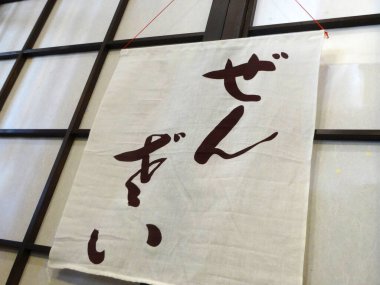 ぜん
ざい